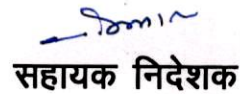 सहायक निदेशक